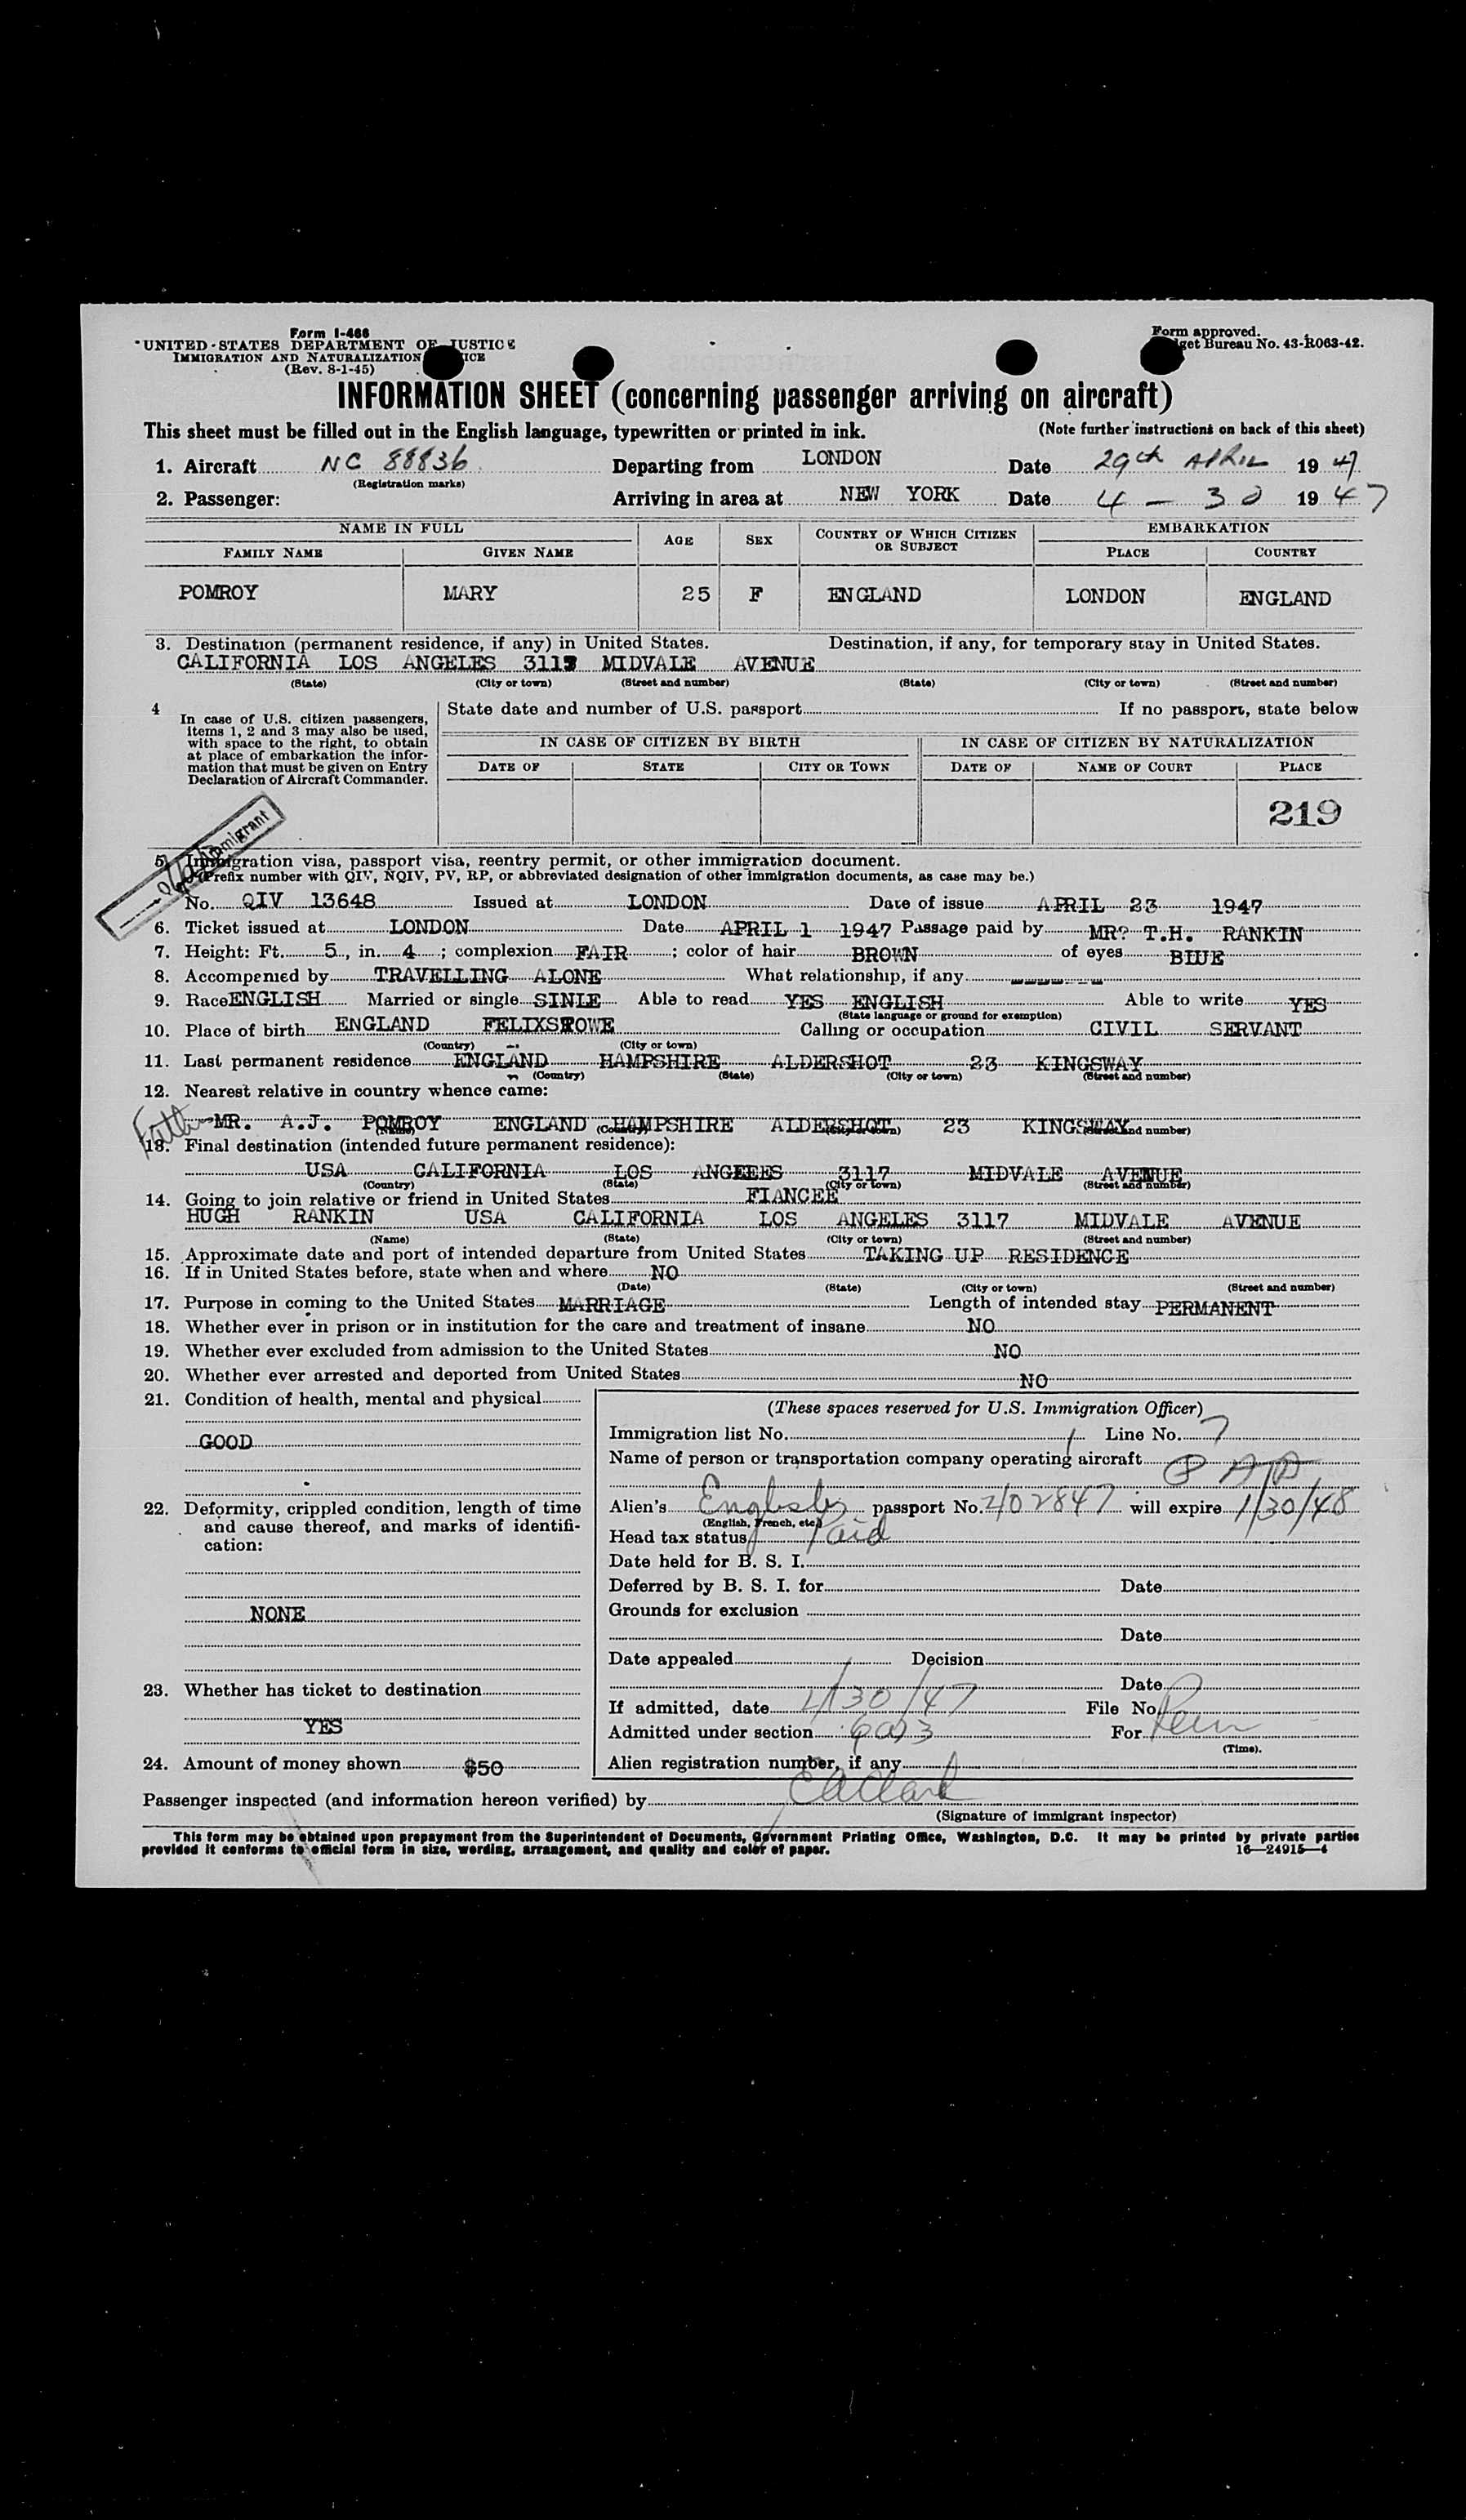 Form I-466
UNITED STATES DEPARTMENT OF JUSTICE
IMMIGRATION AND NATURALIZATION ICE
(Rev. 8-1-45)
Form approved.
get Bureau No. 43-R063-42.
INFORMATION SHEET (concerning passenger arriving on aircraft)
This sheet must be filled out in the English language, typewritten or printed in ink. (Note further instructions on back of this sheet)
1. Aircraft NC 88836 Departing from LONDON Date 29th APRIL 1947
(Registration marks)
2. Passenger: Arriving in area at NEW YORK Date 4 - 30 1947
NAME IN FULL AGE SEX COUNTRY OF WHICH CITIZEN OR SUBJECT EMBARKATION
FAMILY NAME GIVEN NAME PLACE COUNTRY
POMROY MARY 25 F ENGLAND LONDON ENGLAND
3. Destination (permanent residence, if any) in United States. Destination, if any, for temporary stay in United States.
CALIFORNIA LOS ANGELES 3117 MIDVALE AVENUE
(State) (City or town) (Street and number) (State) (City or town) (Street and number)
4 In case of U.S. citizen passengers, items 1, 2 and 3 may also be used, with space to the right, to obtain at place of embarkation the information that must be given on Entry Declaration of Aircraft Commander.
State date and number of U.S. passport If no passport, state below
IN CASE OF CITIZEN BY BIRTH IN CASE OF CITIZEN BY NATURALIZATION
DATE OF STATE CITY OR TOWN DATE OF NAME OF COURT PLACE
219
Immigrant
5. Immigration visa, passport visa, reentry permit, or other immigration document.
(Prefix number with QIV, NQIV, PV, RP, or abbreviated designation of other immigration documents, as case may be.)
No. QIV 13648 Issued at LONDON Date of issue APRIL 23 1947
6. Ticket issued at LONDON Date APRIL 1 1947 Passage paid by MR? T.H. RANKIN
7. Height: Ft. 5, in. 4; complexion FAIR; color of hair BROWN of eyes BLUE
8. Accompenied by TRAVELLING ALONE What relationship, if any
9. Race ENGLISH Married or single SINLE Able to read YES ENGLISH Able to write YES
(State language or ground for exemption)
10. Place of birth ENGLAND FELIXSTOWE Calling or occupation CIVIL SERVANT
(Country) (City or town)
11. Last permanent residence ENGLAND HAMPSHIRE ALDERSHOT 23 KINGSWAY
(Country) (State) (City or town) (Street and number)
12. Nearest relative in country whence came:
Father MR. A.J. POMROY ENGLAND HAMPSHIRE ALDERSHOT 23 KINGSWAY
(Name) (Country) (City or town) (Street and number)
13. Final destination (intended future permanent residence):
USA CALIFORNIA LOS ANGELES 3117 MIDVALE AVENUE
(Country) (State) (City or town) (Street and number)
14. Going to join relative or friend in United States FIANCEE
HUGH RANKIN USA CALIFORNIA LOS ANGELES 3117 MIDVALE AVENUE
(Name) (State) (City or town) (Street and number)
15. Approximate date and port of intended departure from United States TAKING UP RESIDENCE
16. If in United States before, state when and where NO
(Date) (State) (City or town) (Street and number)
17. Purpose in coming to the United States MARRIAGE Length of intended stay PERMANENT
18. Whether ever in prison or in institution for the care and treatment of insane NO
19. Whether ever excluded from admission to the United States NO
20. Whether ever arrested and deported from United States NO
21. Condition of health, mental and physical
GOOD
22. Deformity, crippled condition, length of time and cause thereof, and marks of identification:
NONE
23. Whether has ticket to destination
YES
24. Amount of money shown $50
(These spaces reserved for U.S. Immigration Officer)
Immigration list No. 1 Line No. 7
Name of person or transportation company operating aircraft P A A
Alien's English passport No. 202847 will expire 1/30/48
(English, French, etc.)
Head tax status Paid
Date held for B. S. I.
Deferred by B. S. I. for Date
Grounds for exclusion
Date
Date appealed Decision
Date
If admitted, date 4/30/47 File No.
Admitted under section 6(a)3 For Perm
(Time).
Alien registration number, if any
Passenger inspected (and information hereon verified) by EAClark
(Signature of immigrant inspector)
This form may be obtained upon prepayment from the Superintendent of Documents, Government Printing Office, Washington, D.C. It may be printed by private parties
provided it conforms to official form in size, wording, arrangement, and quality and color of paper. 16—24915-4